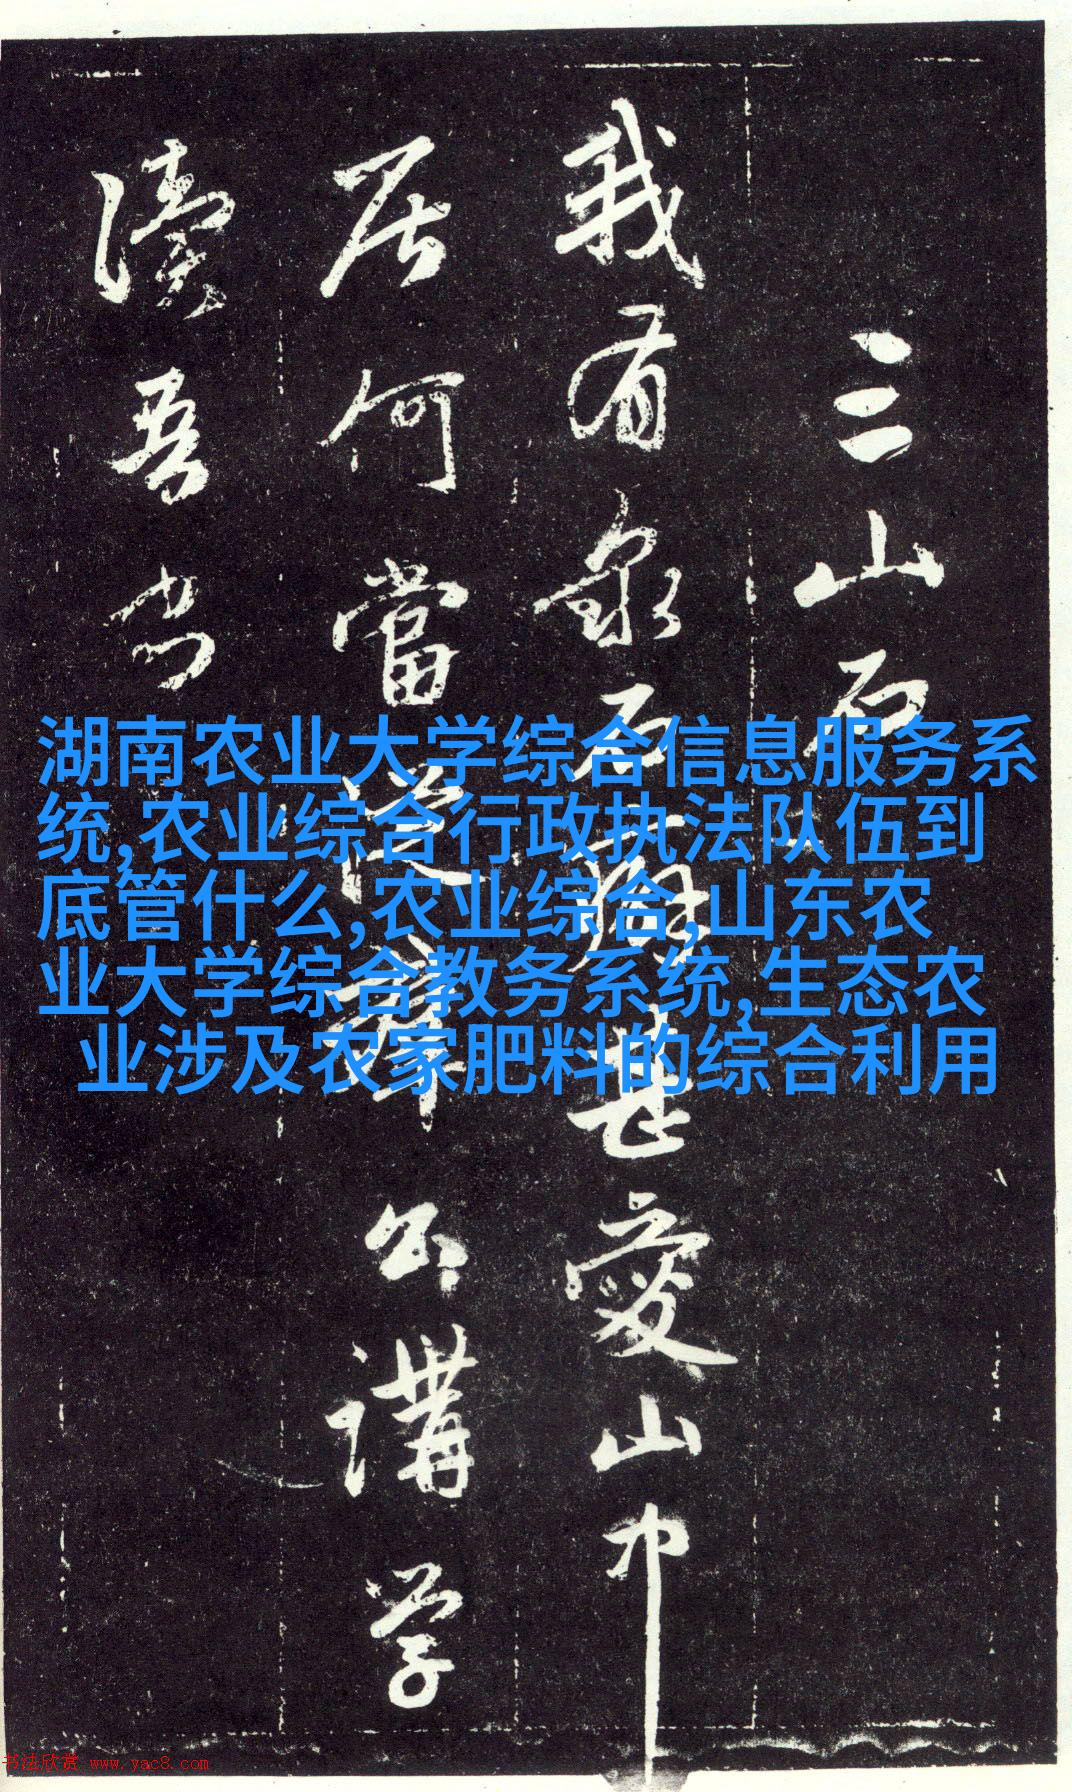 三山石
我有泉石癖甚愛山中
居何當從公講學
讀吾書
湖南农业大学综合信息服务系
统,农业综合行政执法队伍到
底管什么,农业综合,山东农
业大学综合教务系统,生态农
业涉及农家肥料的综合利用
书法欣赏 www.yac8.com